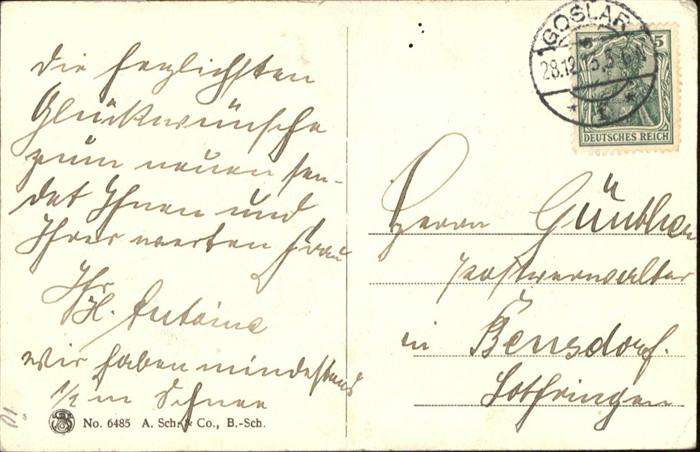 die herzlichsten
Glückwünsche
zum neuen sen-
det Ihnen und
Ihrer werten Frau
Ihr
H. Antoine
wir haben mindestens
1/2 m Schnee
No. 6485 A. Sch. & Co., B.-Sch.
GOSLAR
28.12.
5 5
DEUTSCHES REICH
Herrn Günther
Postverwalter
in Bensdorf.
Lothringen